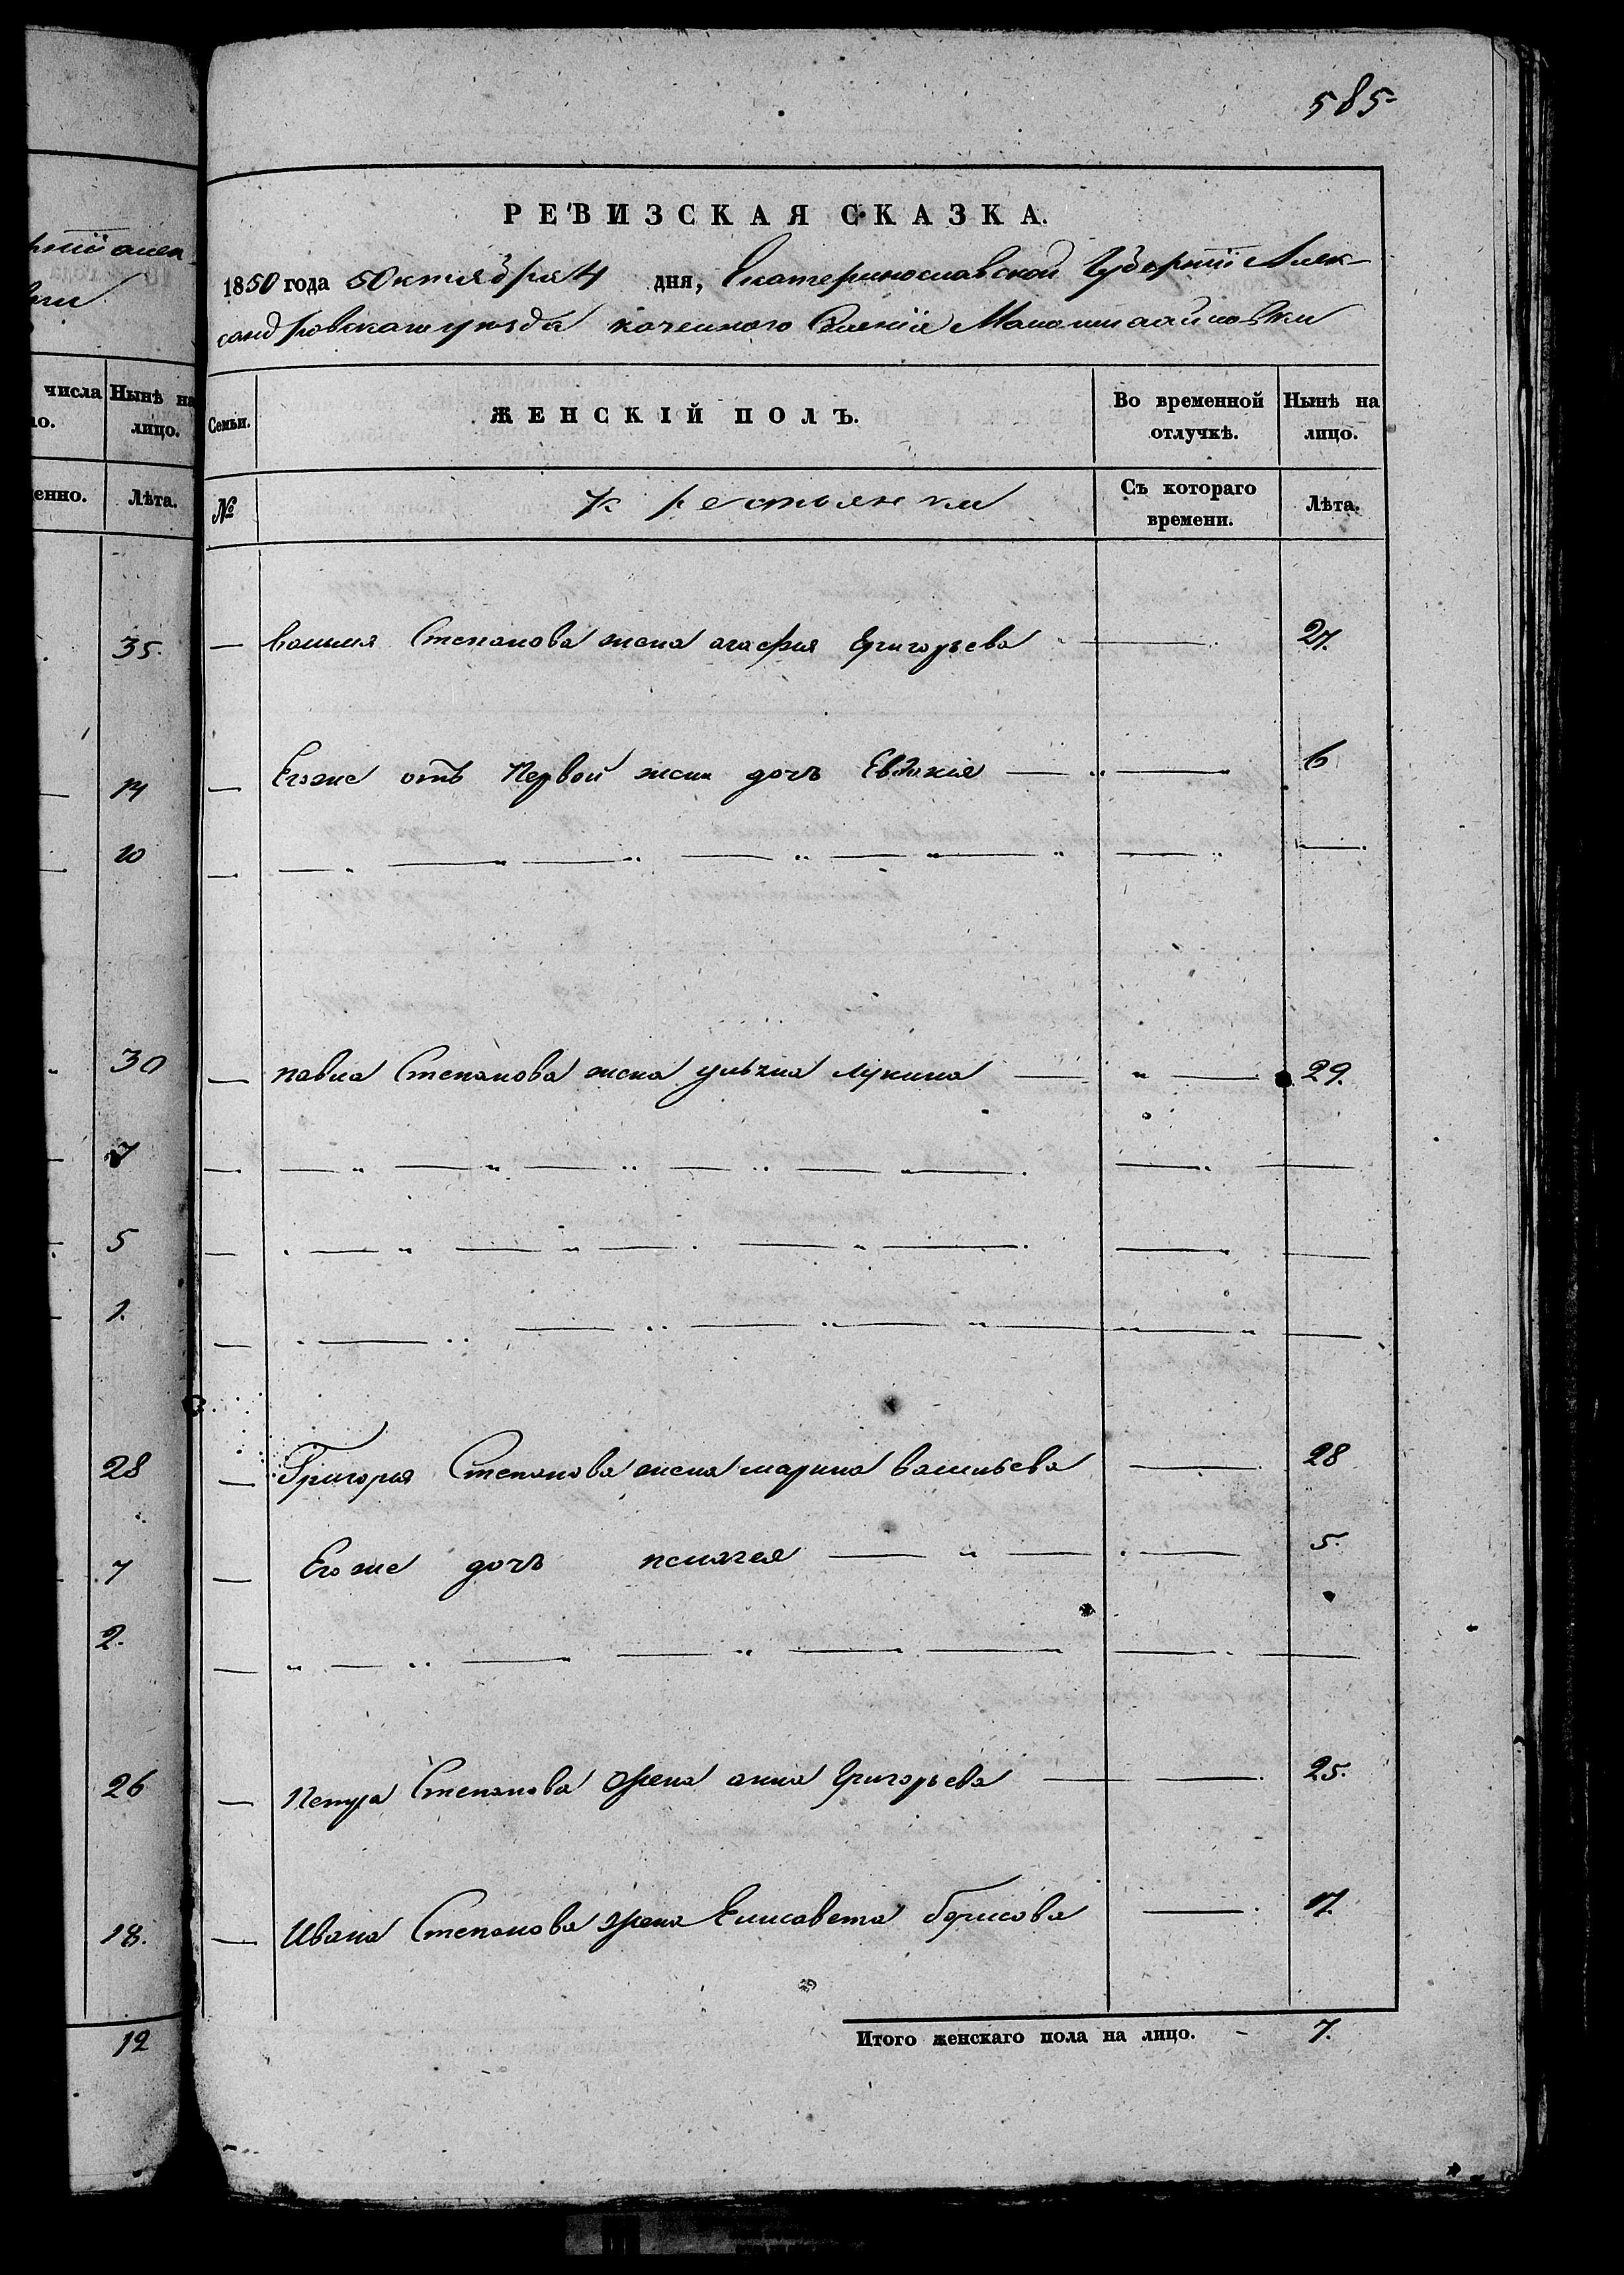 585
РЕВИЗСКАЯ СКАЗКА.
1850 года Октября 4 дня, Екатеринославской Губернии Алек-
сандровскаго уезда казенного Селения
числа Нынѣ на лицо. Семьи. ЖЕНСКІЙ ПОЛЪ. Во временной отлучкѣ. Нынѣ на лицо.
Лѣта. № крестьянки Съ котораго времени. Лѣта.
35. — Степанова жена агафия Григорьева — 27.
14 — Егоже отъ Первой жены дочь Евдокия — 6
10
30 — павла Степанова жена Лукина — 29.
7
5
1.
28 — Григория Степанова жена марина васильева — 28
7 — Егоже дочь пелагея — 5.
2.
26 — Петра Степанова жена анна Григорьева — 25.
18. — Ивана Степанова жена Елисавета борисова — 17.
12 Итого женскаго пола на лицо. - 7.